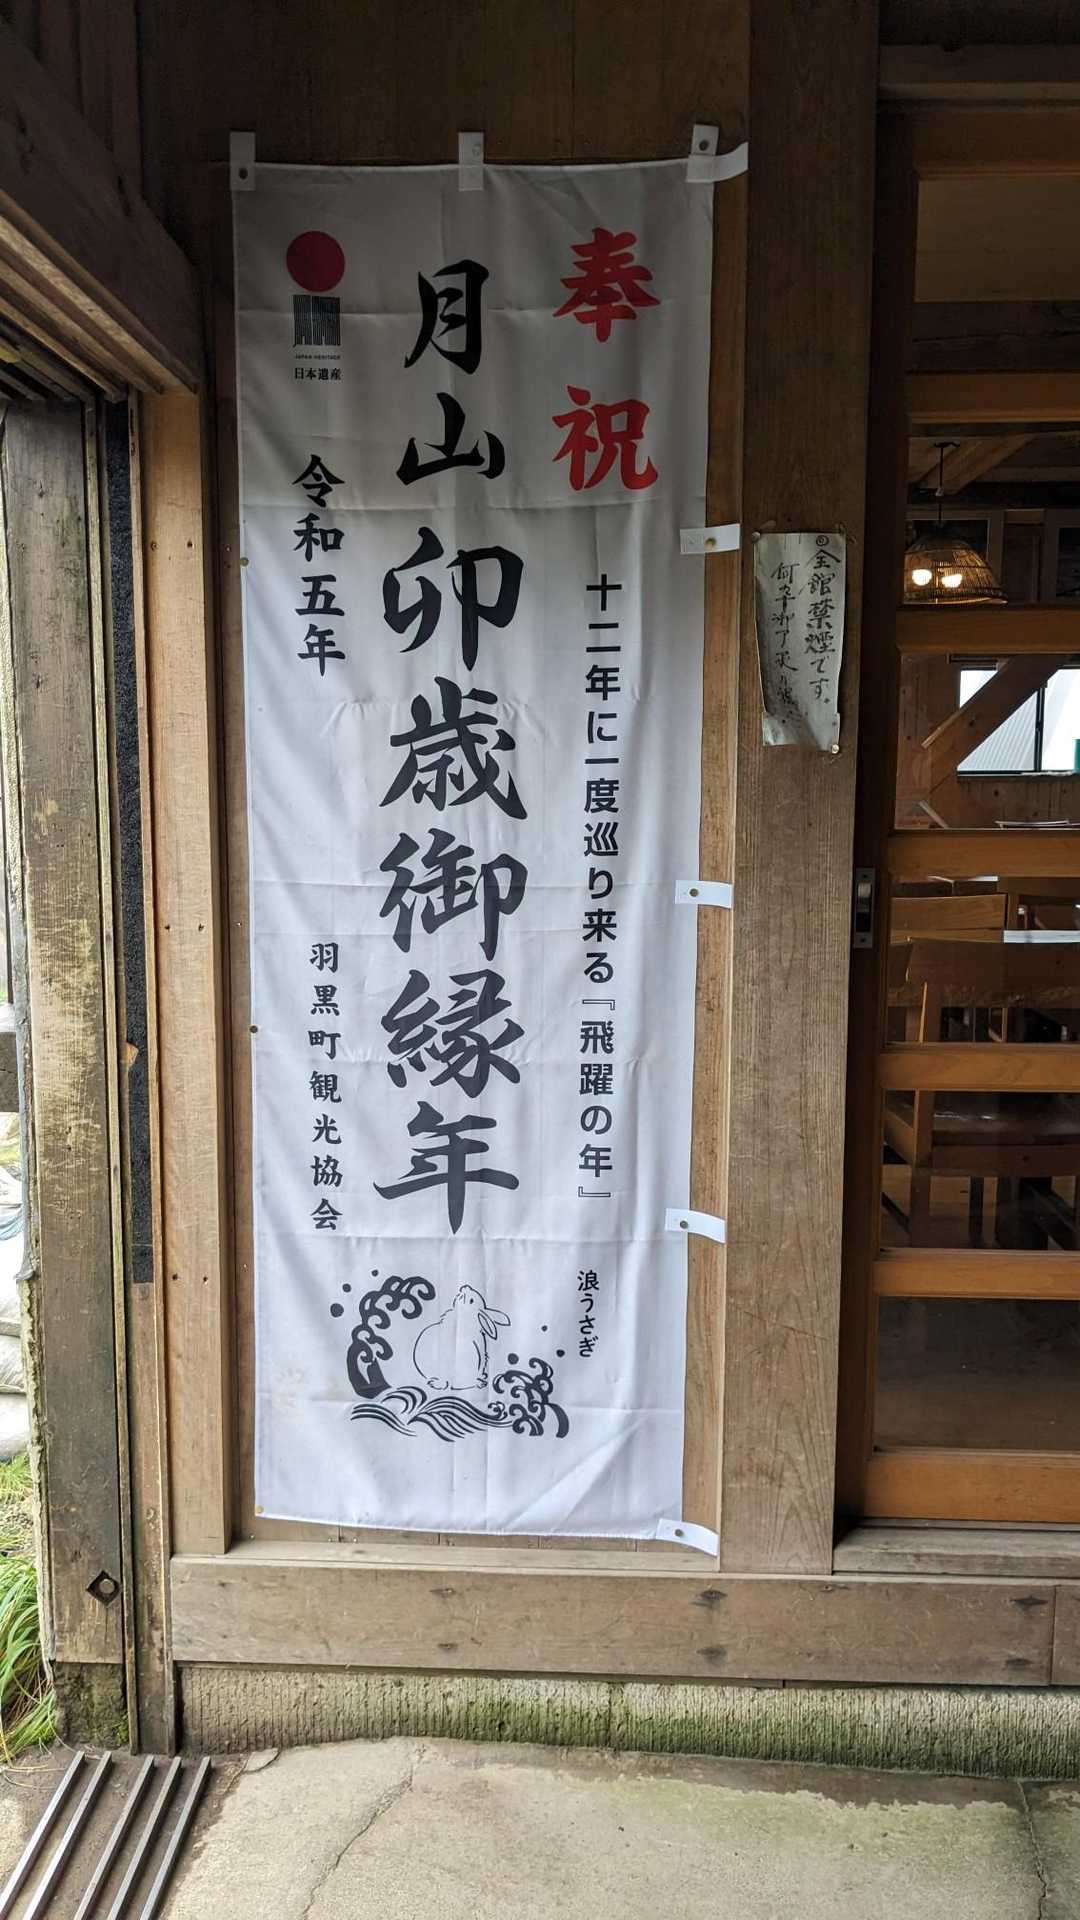 奉祝
十二年に一度巡り来る『飛躍の年』
浪うさぎ
月山卯歳御縁年
JAPAN HERITAGE
日本遺産
令和五年
羽黒町観光協会
全館禁煙です。